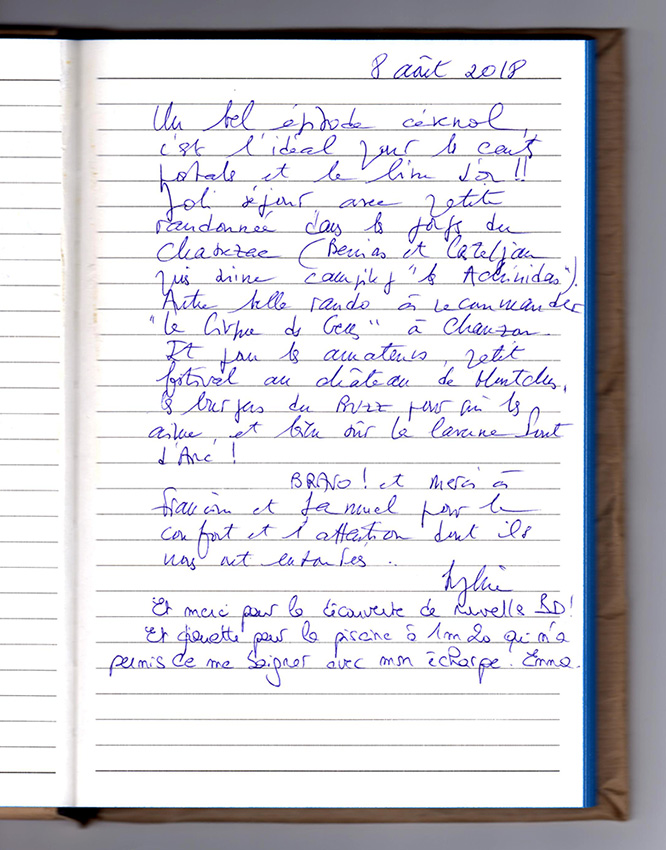 8 août 2018
Un bel épisode cévenol,
c'est l'idéal pour les
et le livre d'or !!
Joli séjour avec petite
randonnée dans les gorges du
Chassezac (Berrias et Casteljau
camping "les").
Autre belle rando à recommander
"le Cirque de Gens" à Chauzon.
Et pour les amateurs, petit
festival au château de
les du Buzz pour qui les
aime, et bien sûr la caverne Pont
d'Arc !
BRAVO ! et merci à
Francine et pour le
confort et l'attention dont ils
nous ont entourés ..
Sylvie
Et merci pour la découverte de nouvelle BD !
Et chouette pour la piscine à 1m20 qui m'a
permis de me baigner avec mon écharpe. Emma.